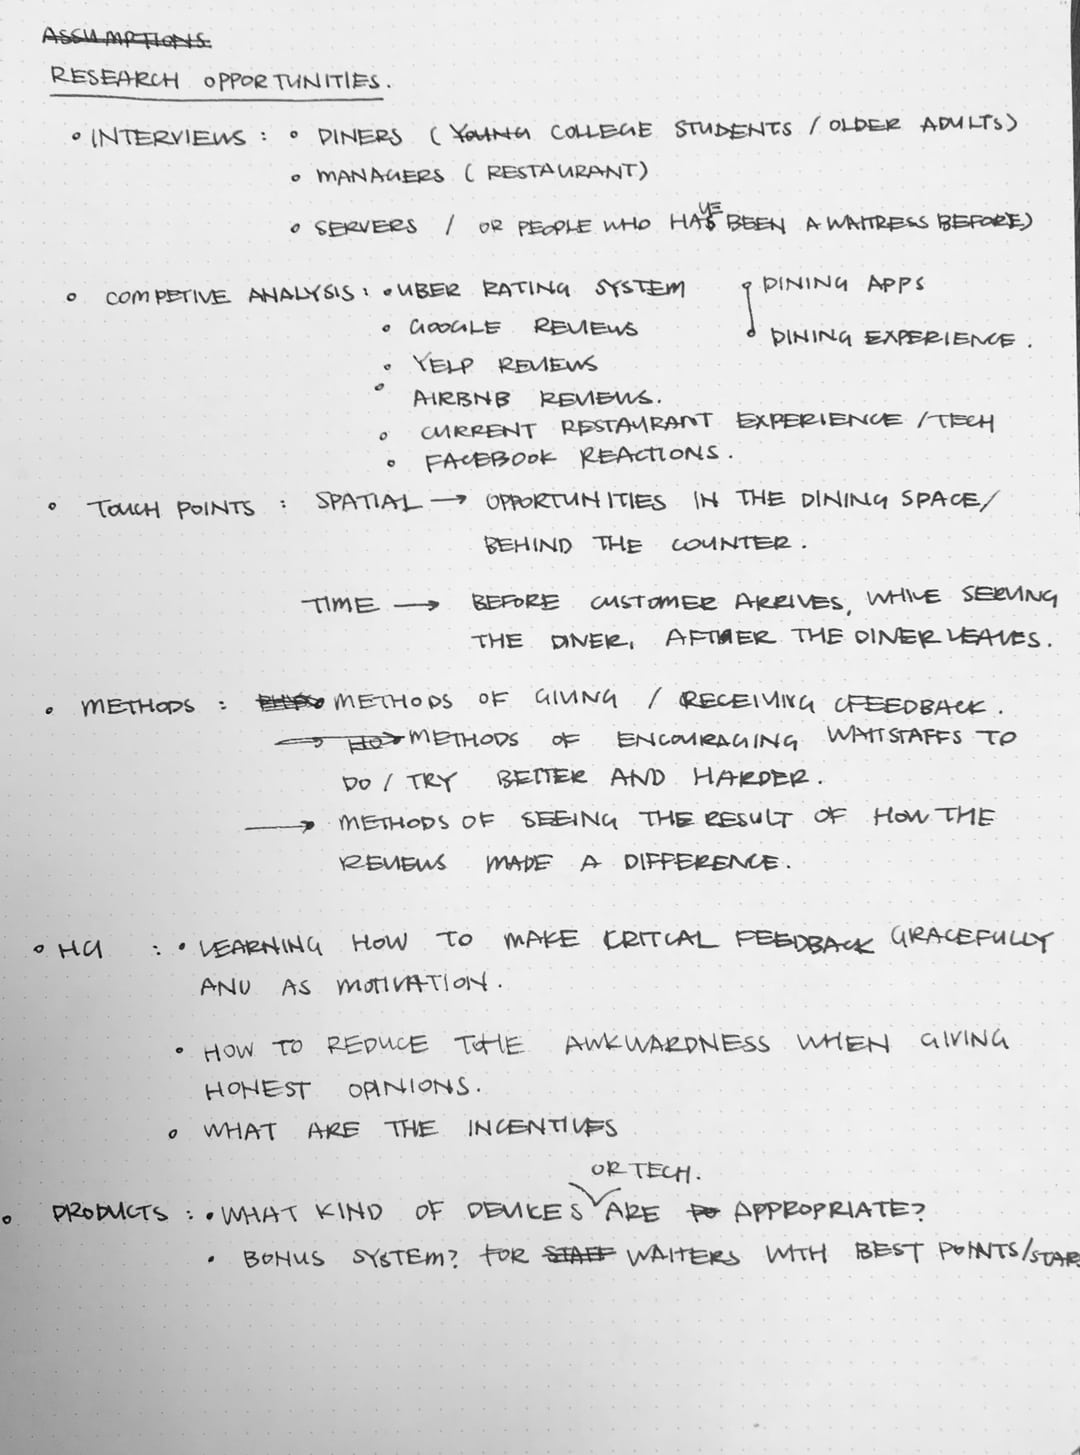 ASSUMPTIONS
RESEARCH OPPORTUNITIES.
• INTERVIEWS : • DINERS ( YOUNG COLLEGE STUDENTS / OLDER ADULTS)
• MANAGERS ( RESTAURANT)
• SERVERS / OR PEOPLE WHO HAVE BEEN A WAITRESS BEFORE)
• COMPETIVE ANALYSIS : • UBER RATING SYSTEM • DINING APPS
• GOOGLE REVIEWS • DINING EXPERIENCE .
• YELP REVIEWS
• AIRBNB REVIEWS.
• CURRENT RESTAURANT EXPERIENCE / TECH
• FACEBOOK REACTIONS .
• TOUCH POINTS : SPATIAL → OPPORTUNITIES IN THE DINING SPACE/
BEHIND THE COUNTER .
TIME → BEFORE CUSTOMER ARRIVES, WHILE SERVING
THE DINER, AFTER THE DINER LEAVES.
• METHODS : METHODS OF GIVING / RECEIVING FEEDBACK .
→ METHODS OF ENCOURAGING WAITSTAFFS TO
DO / TRY BETTER AND HARDER .
→ METHODS OF SEEING THE RESULT OF HOW THE
REVIEWS MADE A DIFFERENCE.
• HCI : • LEARNING HOW TO MAKE CRITCAL FEEDBACK GRACEFULLY
AND AS MOTIVATION .
• HOW TO REDUCE THE AWKWARDNESS WHEN GIVING
HONEST OPINIONS.
• WHAT ARE THE INCENTIVES
OR TECH.
• PRODUCTS : • WHAT KIND OF DEVICES ARE APPROPRIATE?
• BONUS SYSTEM? FOR STAFF WAITERS WITH BEST POINTS/STAR